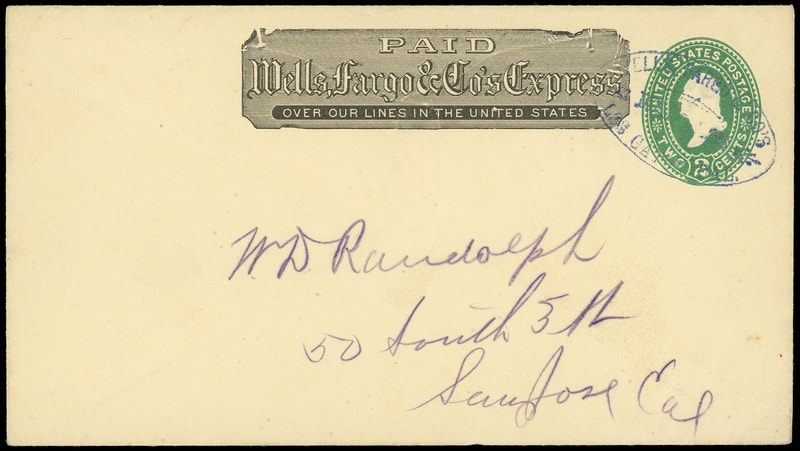 PAID
Wells, Fargo & Co's Express
OVER OUR LINES IN THE UNITED STATES
UNITED STATES POSTAGE
TWO 2 CENTS
WELLS FARGO & CO'S
LOS GAT CAL.
W D Randolph
50 South 5th
San Jose Cal